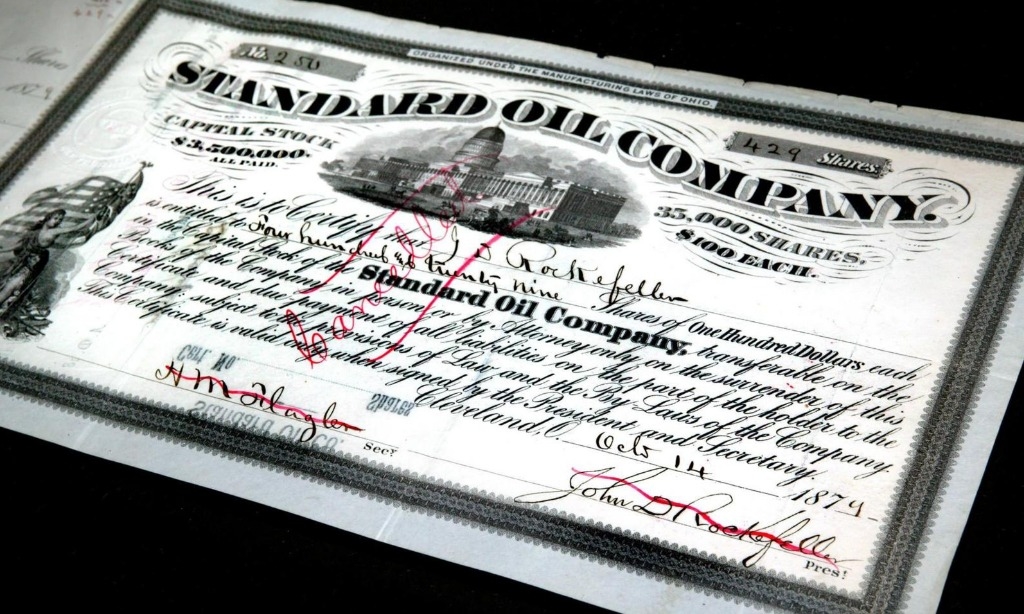 No. 250
ORGANIZED UNDER THE MANUFACTURING LAWS OF OHIO.
STANDARD OIL COMPANY.
429 Shares.
CAPITAL STOCK
$3,500,000.
ALL PAID.
35,000 SHARES.
$100 EACH.
This is to Certify J D Rockefeller
is entitled to Four hundred & twenty nine Shares of One Hundred Dollars each
in the Capital Stock of the Standard Oil Company, transferable on the
Books of the Company in person or by Attorney only on the surrender of this
Certificate and due payment of all liabilities on the part of the holder to the
Company, subject to the provisions of Law and the By Laws of the Company.
This Certificate is valid only when signed by the President and Secretary.
Cancelled
Cleveland, Oct 14 1879
H M Flagler Secy
John D Rockefeller Pres!
Shares
1879